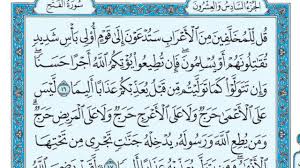 الجزء السادس والعشرون سورة الفتح
قُل لِّلْمُخَلَّفِينَ مِنَ ٱلْأَعْرَابِ سَتُدْعَوْنَ إِلَىٰ قَوْمٍ أُو۟لِى بَأْسٍ شَدِيدٍ
تُقَٰتِلُونَهُمْ أَوْ يُسْلِمُونَ فَإِن تُطِيعُوا۟ يُؤْتِكُمُ ٱللَّهُ أَجْرًا حَسَنًا
وَإِن تَتَوَلَّوْا۟ كَمَا تَوَلَّيْتُم مِّن قَبْلُ يُعَذِّبْكُمْ عَذَابًا أَلِيمًا ١٦ لَّيْسَ
عَلَى ٱلْأَعْمَىٰ حَرَجٌ وَلَا عَلَى ٱلْأَعْرَجِ حَرَجٌ وَلَا عَلَى ٱلْمَرِيضِ حَرَجٌ
وَمَن يُطِعِ ٱللَّهَ وَرَسُولَهُۥ يُدْخِلْهُ جَنَّٰتٍ تَجْرِى مِن تَحْتِهَا